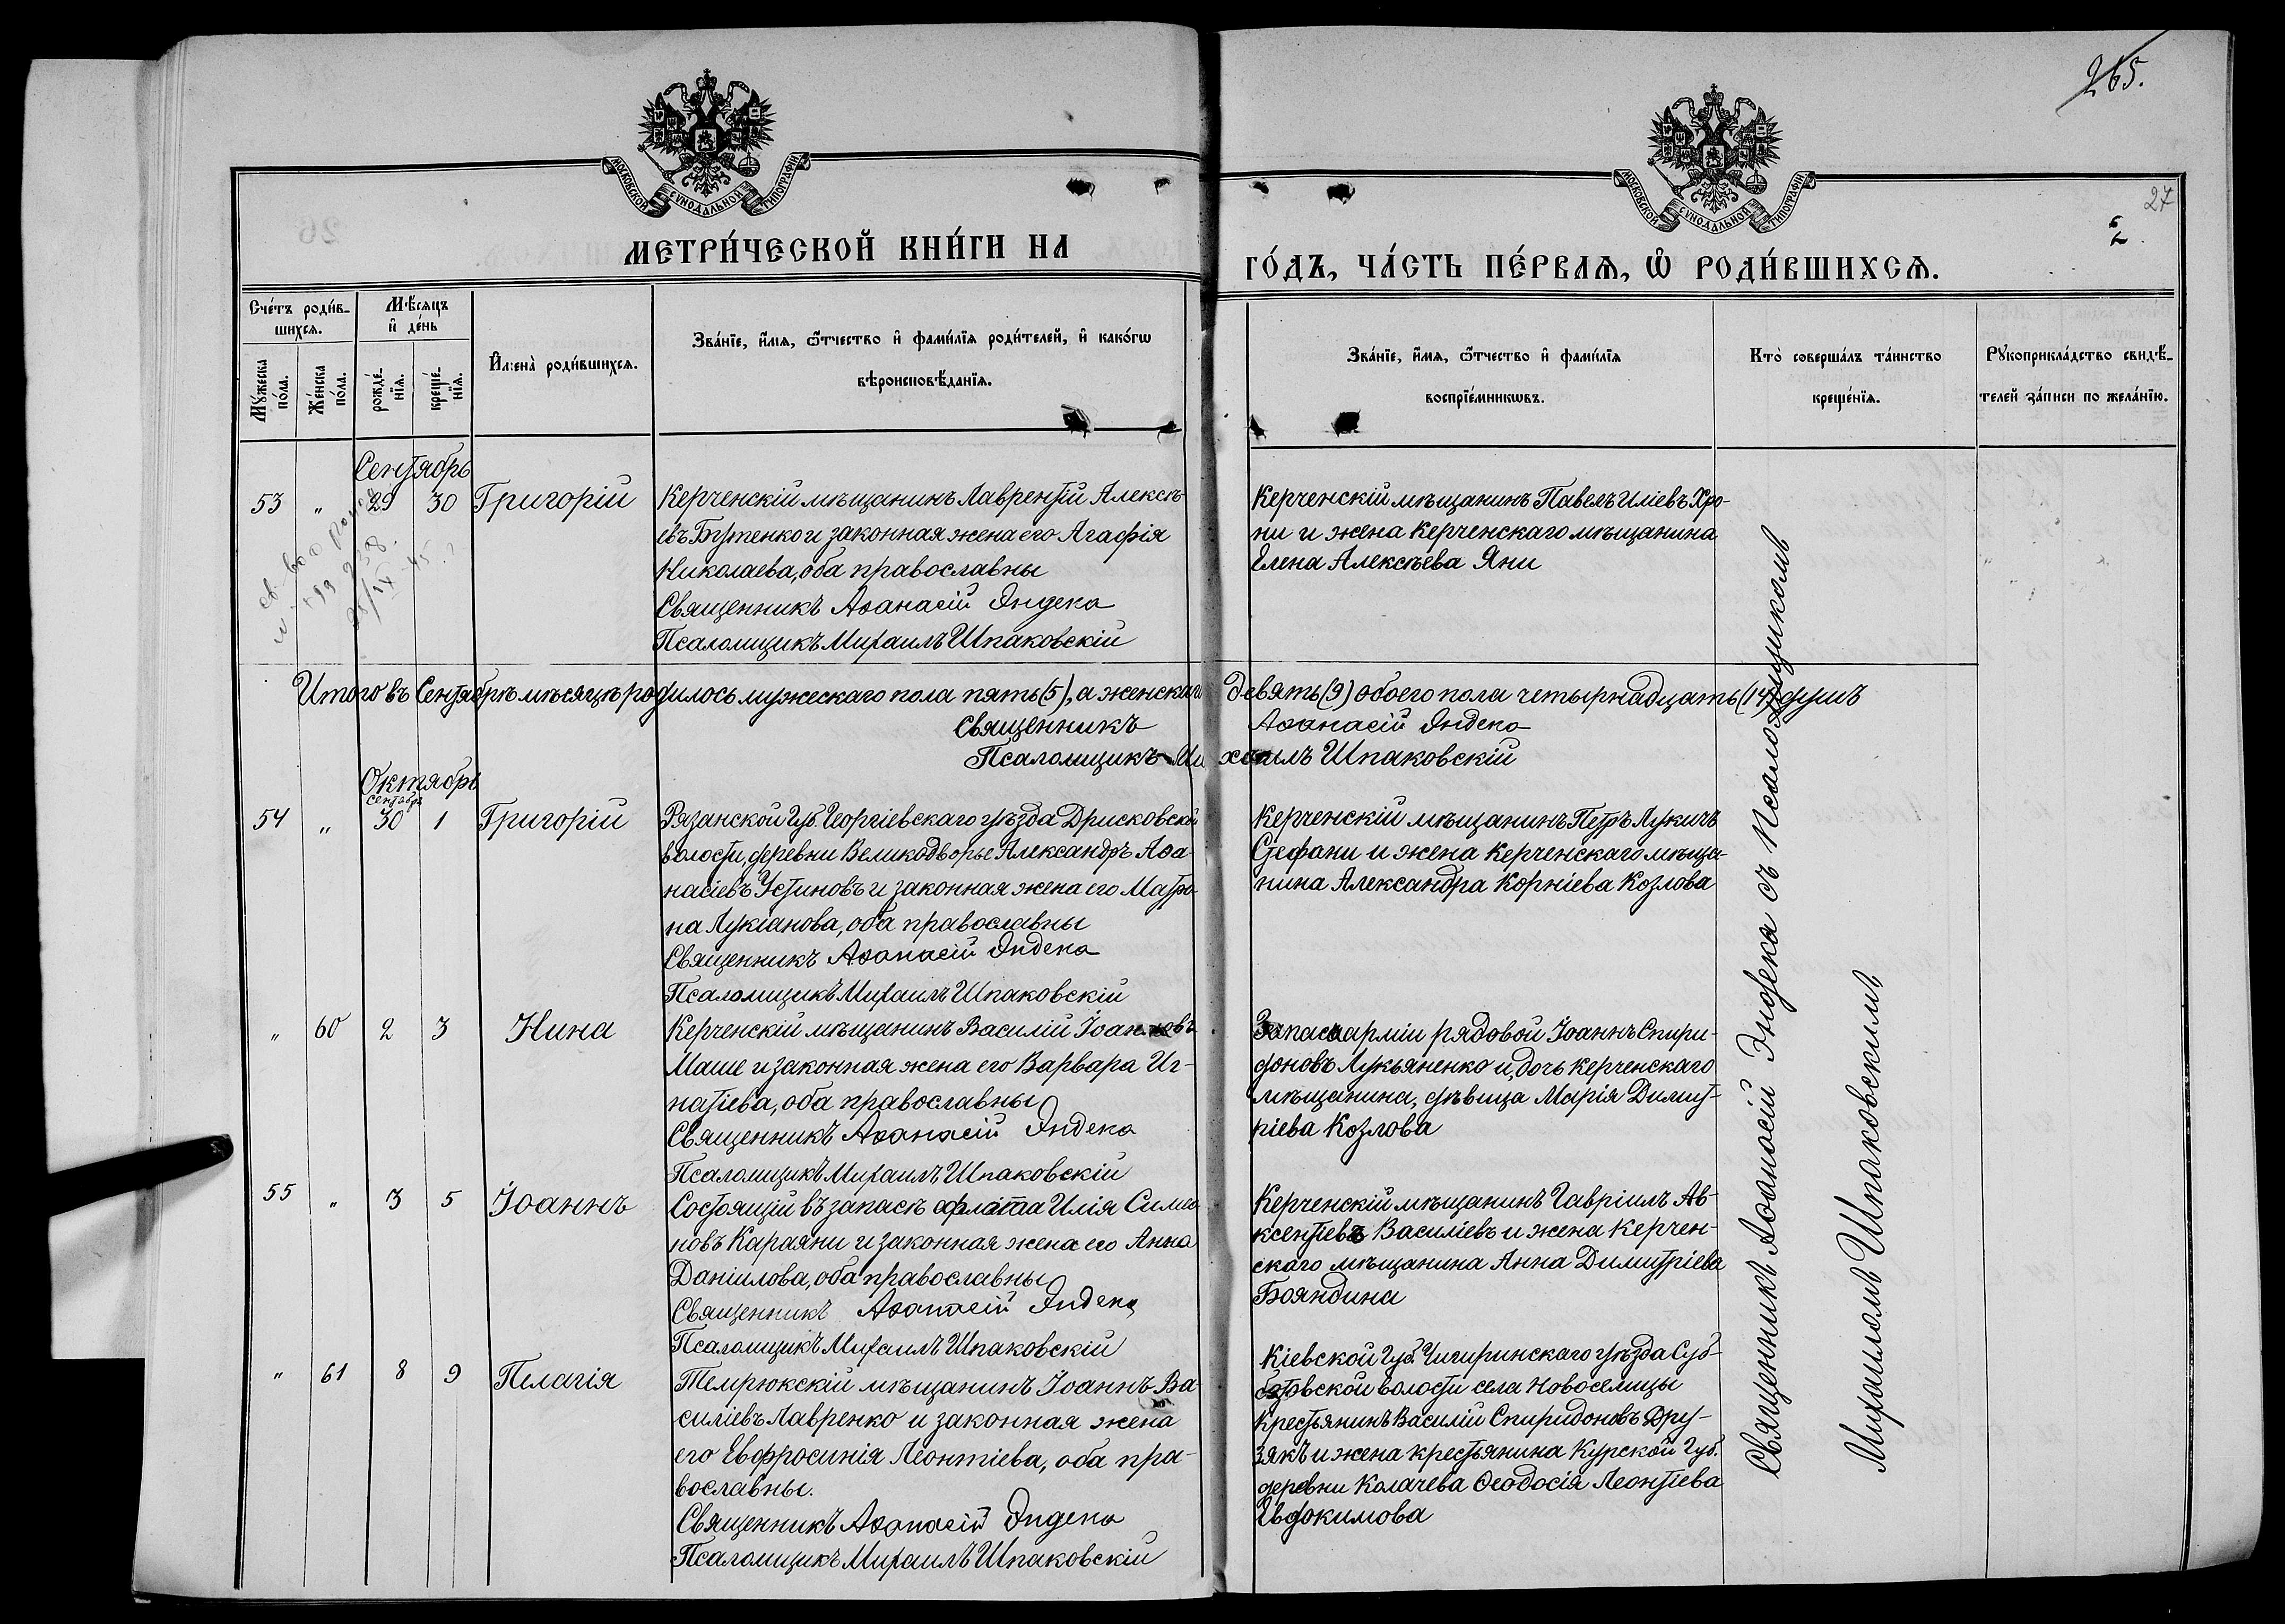 265.
27
МОСКОВСКОЙ СУНОДАЛЬНОЙ ТИПОГРАФІИ
МОСКОВСКОЙ СУНОДАЛЬНОЙ ТИПОГРАФІИ
МЕТРИ́ЧЕСКОЙ КНИ́ГИ НА
ГО́ДЪ, ЧА́СТЬ ПЕ́РВАѦ, Ѡ҆ РОДИ́ВШИХСѦ.
Сче́тъ роди́в-
шихсѧ.
Мꙋ́жеска
по́ла.
Же́нска
по́ла.
Мѣ́сѧцъ
и҆ де́нь
рожде́-
нїѧ.
креще́-
нїѧ.
И҆мена̀ роди́вшихсѧ.
Зва́нїе, и҆́мѧ, ѻ҆́тчество и҆ фами́лїѧ роди́телей, и҆ како́гѡ
вѣроисповѣ́данїѧ.
Зва́нїе, и҆́мѧ, ѻ҆́тчество и҆ фами́лїѧ
воспрїе́мникѡвъ.
Кто̀ соверша́лъ та́инство
креще́нїѧ.
Рꙋкоприкла́дство свидѣ́-
телей за́писи по жела́нїю.
Сентябрь
53 " 29 30 Григорій
Керченскій мѣщанинъ Лаврентій Алексѣ-
евъ Бутенко и законная жена его Агафія
Николаева, оба православны
Священникъ Аѳанасій Эндека
Псаломщикъ Михаилъ Шпаковскій
Керченскій мѣщанинъ Павелъ Иліевъ Хро-
ни и жена Керченскаго мѣщанина
Елена Алексѣева Яни
Итого въ Сентябрѣ мѣсяцѣ родилось мужескаго пола пять (5), а женскаго девять (9) обоего пола четырнадцать (14) душъ
Священникъ Аѳанасій Эндека
Псаломщикъ Михаилъ Шпаковскій
Октябрь
сентября
54 " 30 1 Григорій
Рязанской Губ. Георгіевскаго уѣзда Дрисковской
волости, деревни Великодворье Александръ Аѳа-
насіевъ Устиновъ и законная жена его Матро-
на Лукіанова, оба православны
Священникъ Аѳанасій Эндека
Псаломщикъ Михаилъ Шпаковскій
Керченскій мѣщанинъ Петръ Лукичъ
Стефани и жена Керченскаго мѣща-
нина Александра Корніева Козлова
" 60 2 3 Нина
Керченскій мѣщанинъ Василій Іоанновъ
Маше и законная жена его Варвара Иг-
натіева, оба православны
Священникъ Аѳанасій Эндека
Псаломщикъ Михаилъ Шпаковскій
Запаса арміи рядовой Іоаннъ Спири-
доновъ Лукьяненко и, дочь Керченскаго
мѣщанина, дѣвица Марія Димит-
ріева Козлова
55 " 3 5 Іоаннъ
Состоящій въ запасѣ флота Илія Симео-
новъ Караяни и законная жена его Анна
Даніилова, оба православны
Священникъ Аѳанасій Эндека
Псаломщикъ Михаилъ Шпаковскій
Керченскій мѣщанинъ Гавріилъ Ав-
ксентіевъ Василіевъ и жена Керчен-
скаго мѣщанина Анна Димитріева
Бояндина
" 61 8 9 Пелагія
Темрюкскій мѣщанинъ Іоаннъ Ва-
силіевъ Лавренко и законная жена
его Евфросинія Леонтіева, оба пра-
вославны.
Священникъ Аѳанасій Эндека
Псаломщикъ Михаилъ Шпаковскій
Кіевской Губ. Чигиринскаго уѣзда Суб-
ботовской волости села Новоселицы
крестьянинъ Василій Спиридоновъ Дру-
зякъ и жена крестьянина Курской Губ.
деревни Колачева Ѳеодосія Леонтіева
Евдокимова
Священникъ Аѳанасій Эндека съ Псаломщикомъ
Михаиломъ Шпаковскимъ